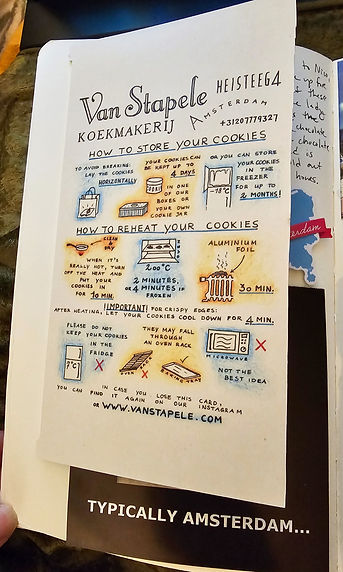 Van Stapele
KOEKMAKERIJ
HEISTEEG 4
AMSTERDAM
+31207779327
HOW TO STORE YOUR COOKIES
TO AVOID BREAKING:
LAY THE COOKIES
HORIZONTALLY
YOUR COOKIES CAN
BE KEPT UP TO
4 DAYS
IN ONE OF
OUR
BOXES OR
YOUR OWN
COOKIE JAR
OR YOU CAN STORE
YOUR COOKIES
IN THE
FREEZER
FOR UP TO
2 MONTHS!
-18°C
HOW TO REHEAT YOUR COOKIES
CLEAN &
DRY
WHEN IT'S
REALLY HOT, TURN
OFF THE HEAT AND
PUT YOUR
COOKIES IN
FOR 10 MIN.
200°C
2 MINUTES,
OR 4 MINUTES IF
FROZEN
ALUMINIUM
FOIL
30 MIN.
AFTER HEATING, IMPORTANT FOR CRISPY EDGES:
LET YOUR COOKIES COOL DOWN FOR 4 MIN.
PLEASE DO NOT
KEEP YOUR COOKIES
IN THE
FRIDGE
7°C
X
THEY MAY FALL
THROUGH
AN OVEN RACK
OVEN RACK
X
BAKING TRAY
MICROWAVE
X
NOT THE
BEST IDEA
IN CASE YOU LOSE THIS CARD,
YOU CAN FIND IT AGAIN ON OUR INSTAGRAM
OR WWW.VANSTAPELE.COM
to Nico
chocolate
TYPICALLY AMSTERDAM...